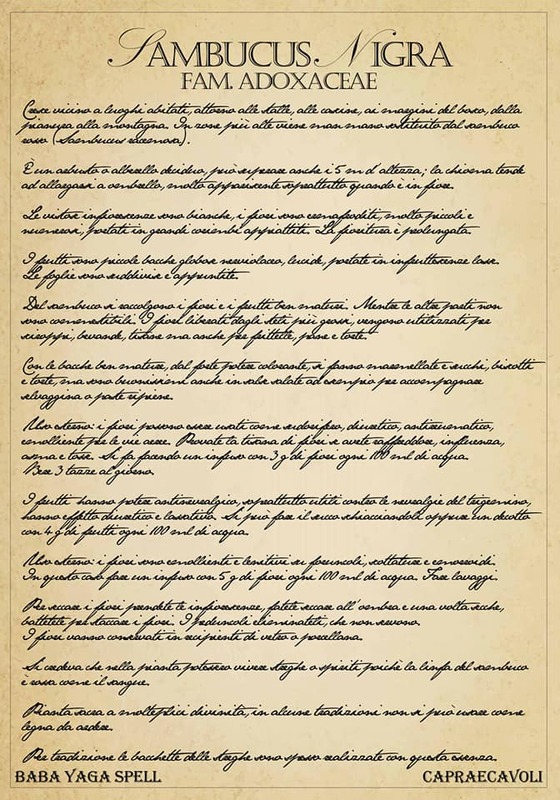 Sambucus Nigra
Fam. Adoxaceae
Cresce vicino a luoghi abitati, attorno alle stalle, alle cascine, ai margini del bosco, dalla
pianura alla montagna. In zone più alte viene man mano sostituito dal sambuco
rosso (Sambucus racemosa).
È un arbusto o alberello deciduo, può superare anche i 5 m d'altezza; la chioma tende
ad allargarsi a ombrello, molto appariscente soprattutto quando è in fiore.
Le vistose infiorescenze sono bianche, i fiori sono ermafroditi, molto piccoli e
numerosi, portati in grandi corimbi appiattiti. La fioritura è prolungata.
I frutti sono piccole bacche globose neroviolacee, lucide, portate in infruttescenze lasse.
Le foglie sono suddivise e appuntite.
Del sambuco si raccolgono i fiori e i frutti ben maturi. Mentre le altre parti non
sono commestibili. I fiori liberati dagli steli più grossi, vengono utilizzate per
sciroppi, bevande, tisane ma anche per frittelle, pane e torte.
Con le bacche ben mature, dal forte potere colorante, si fanno marmellate e succhi, biscotti
e torte, ma sono buonissimi anche in salse salate ad esempio per accompagnare
selvaggina o paste ripiene.
Uso interno: i fiori possono essere usati come sudorifero, diuretico, antireumatico,
emolliente per le vie aeree. Provate la tisana di fiori se avete raffreddore, influenza,
asma e tosse. Si fa facendo un infuso con 3 g di fiori ogni 100 ml di acqua.
Bere 3 tazze al giorno.
I frutti hanno potere antinevralgico, soprattutto utili contro le nevralgie del trigemino,
hanno effetto diuretico e lassativo. Si può fare il succo schiacciandoli oppure un decotto
con 4 g di frutti ogni 100 ml di acqua.
Uso esterno: i fiori sono emollienti e lenitivi su foruncoli, scottature e emorroidi.
In questo caso fare un infuso con 5 g di fiori ogni 100 ml di acqua. Fare lavaggi.
Per seccare i fiori prendete le infiorescenze, fatele seccare all'ombra e una volta secche,
battetele per staccare i fiori. I peduncoli eliminateli, che non servono.
I fiori vanno conservati in recipiente di vetro o porcellana.
Si credeva che nella pianta potessero vivere streghe o spiriti poiché la linfa del sambuco
è rossa come il sangue.
Pianta sacra a molteplici divinità, in alcune tradizioni non si può usare come
legna da ardere.
Per tradizione le bacchette delle streghe sono spesso realizzate con questa essenza.
Baba Yaga Spell
CapraeCavoli